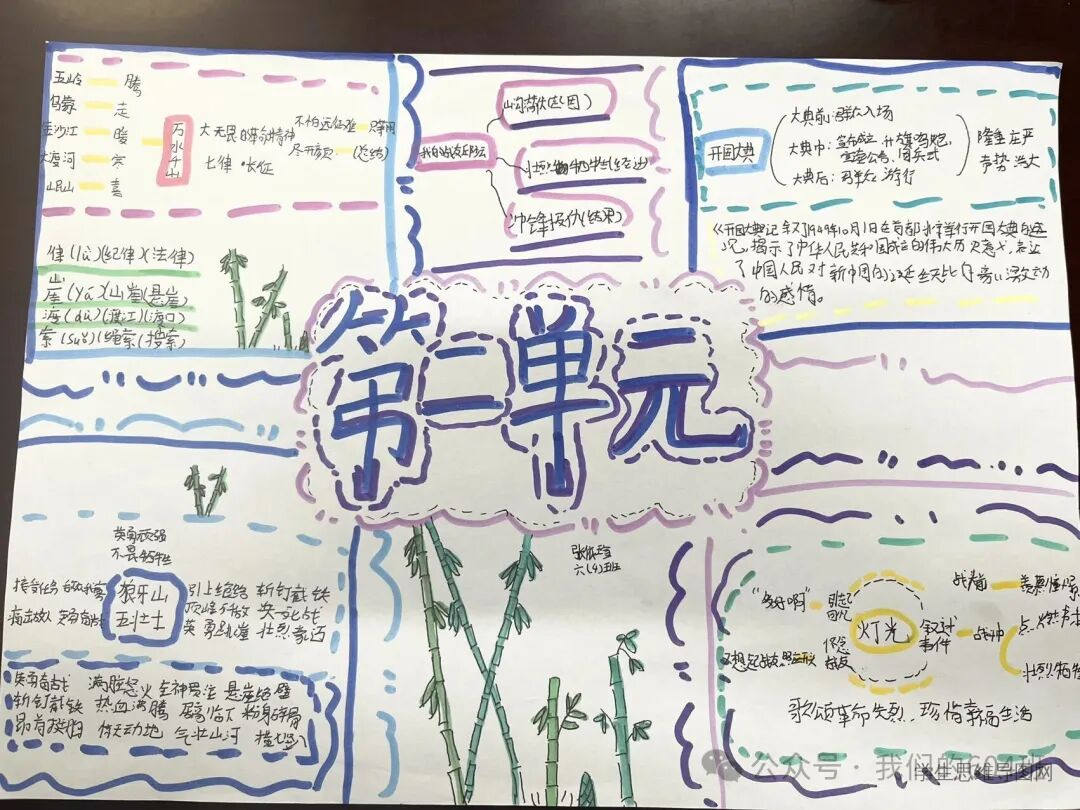 五岭 腾
乌蒙 走
金沙江 暖
大渡河 寒
岷山 喜
万水千山
大无畏的革命精神
七律·长征
不怕远征难
尽开颜 (总结)
律(lǜ)(纪律)(法律)
崖(yá)(山崖)(悬崖)
渡(dù)(渡江)(渡口)
索(suǒ)(绳索)(搜索)
(起因)
壮烈牺牲(经过)
(结果)
开国大典
大典前:群众入场
大典中:宣布成立,升旗鸣炮,
宣读公告,阅兵式
大典后:群众游行
隆重庄严
声势浩大
《开国大典》记叙了1949年10月1日在首都北京举行开国大典的盛
况,揭示了中华人民共和国成立的伟大历史意义,表达
了中国人民对新中国的
的感情。
第二单元
英勇顽强
不畏牺牲
狼牙山
五壮士
接受任务
痛击敌人 英勇奋战
引上绝路 斩钉截铁
顶峰歼敌 决一死战
英勇跳崖 壮烈豪迈
英勇奋战 满腔怒火 全神贯注 悬崖绝壁
斩钉截铁 热血沸腾 居高临下 粉身碎骨
昂首挺胸 惊天动地 气壮山河
六(4)班
"多好啊"
引起回忆
灯光
怀念战友
又想起战友
叙述事件
战斗前
战斗中
壮烈牺牲
歌颂革命先烈,珍惜幸福生活
公众号·我们的604班
学生思维导图网